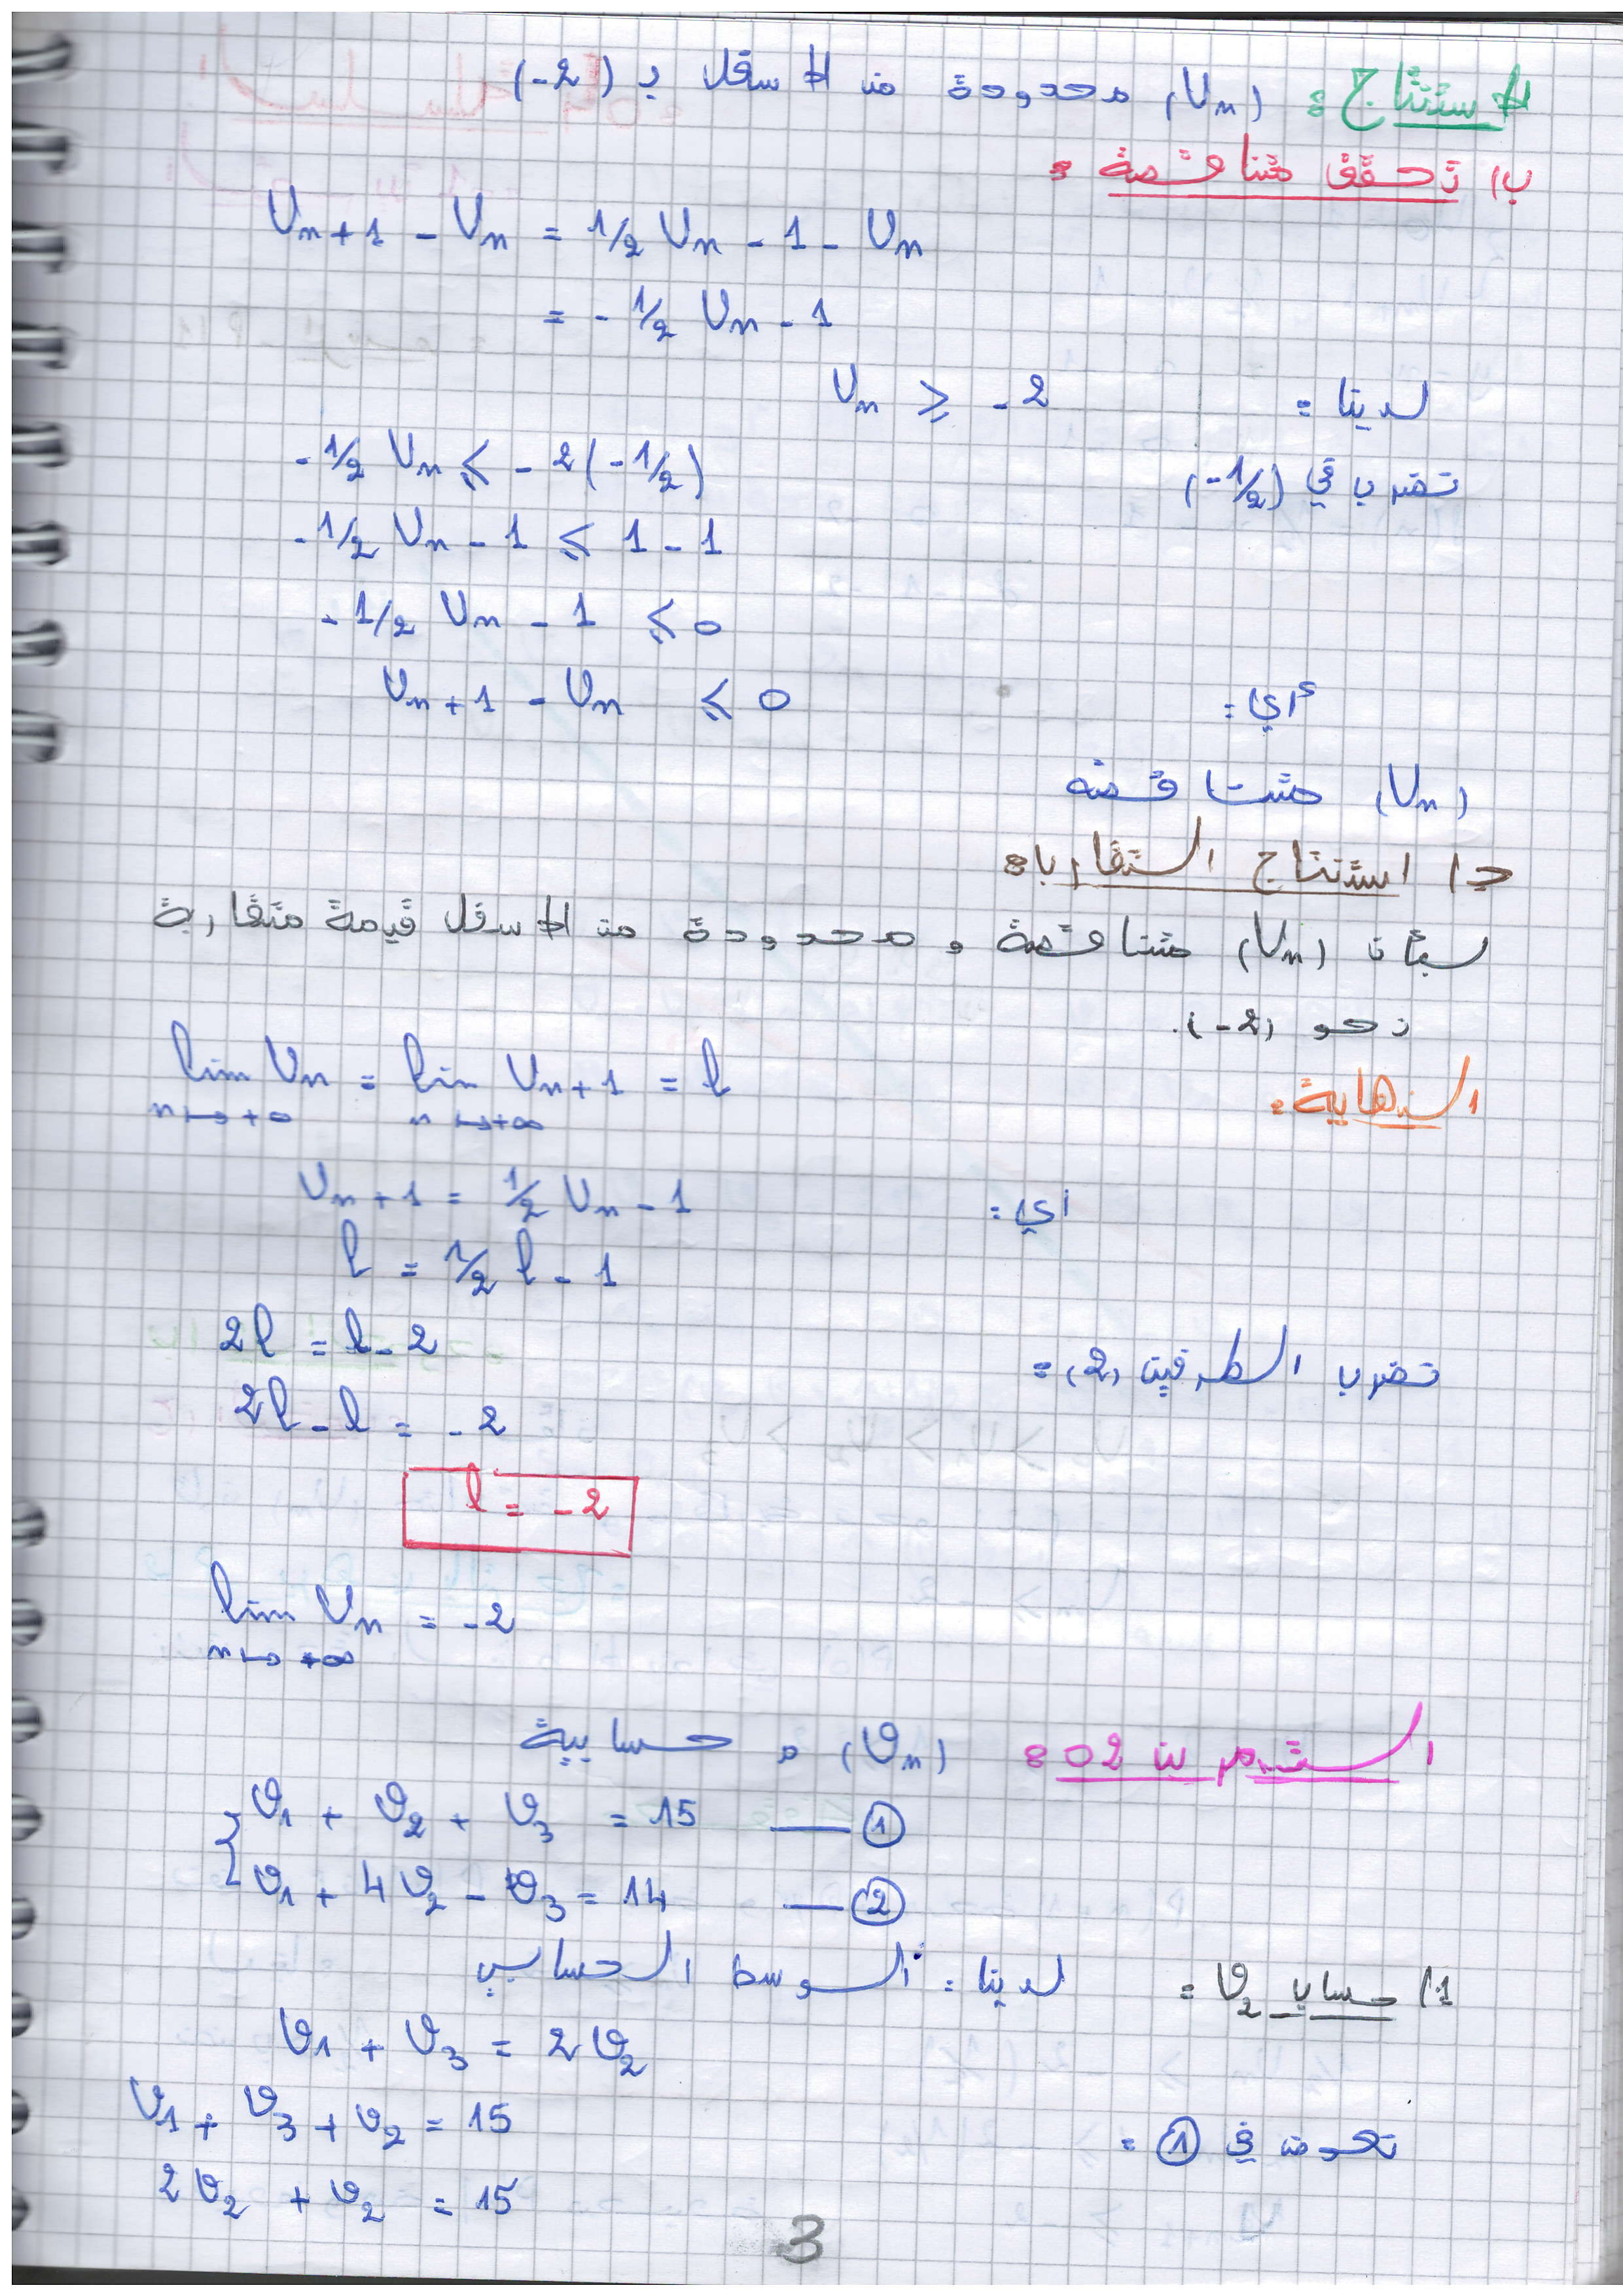 الاستنتاج: (Un) محدودة من الأسفل بـ (-2)
ب) تحقق متناقصة:
Un+1 - Un = 1/2 Un - 1 - Un
= - 1/2 Un - 1
لدينا: Un ⩾ -2
نضرب في (-1/2) -1/2 Un ⩽ -2(-1/2)
-1/2 Un - 1 ⩽ 1 - 1
-1/2 Un - 1 ⩽ 0
أي: Un+1 - Un ⩽ 0
(Un) متناقصة
ج) استنتاج التقارب:
بمأن (Un) متناقصة و محدودة من الأسفل متقاربة
نحو (-2).
النهاية: lim Un = lim Un+1 = l
n↦+∞ n↦+∞
أي: Un+1 = 1/2 Un - 1
l = 1/2 l - 1
نضرب الطرفين (2): 2l = l - 2
2l - l = -2
l = -2
lim Un = -2
n↦+∞
التمرين 02: (Vn) م حسابية
{ V1 + V2 + V3 = 15 — ①
V1 + 4V2 - V3 = 14 — ②
1) حساب V2: لدينا: الوسط الحسابي
V1 + V3 = 2V2
نعوض في ①: V1 + V3 + V2 = 15
2V2 + V2 = 15
3